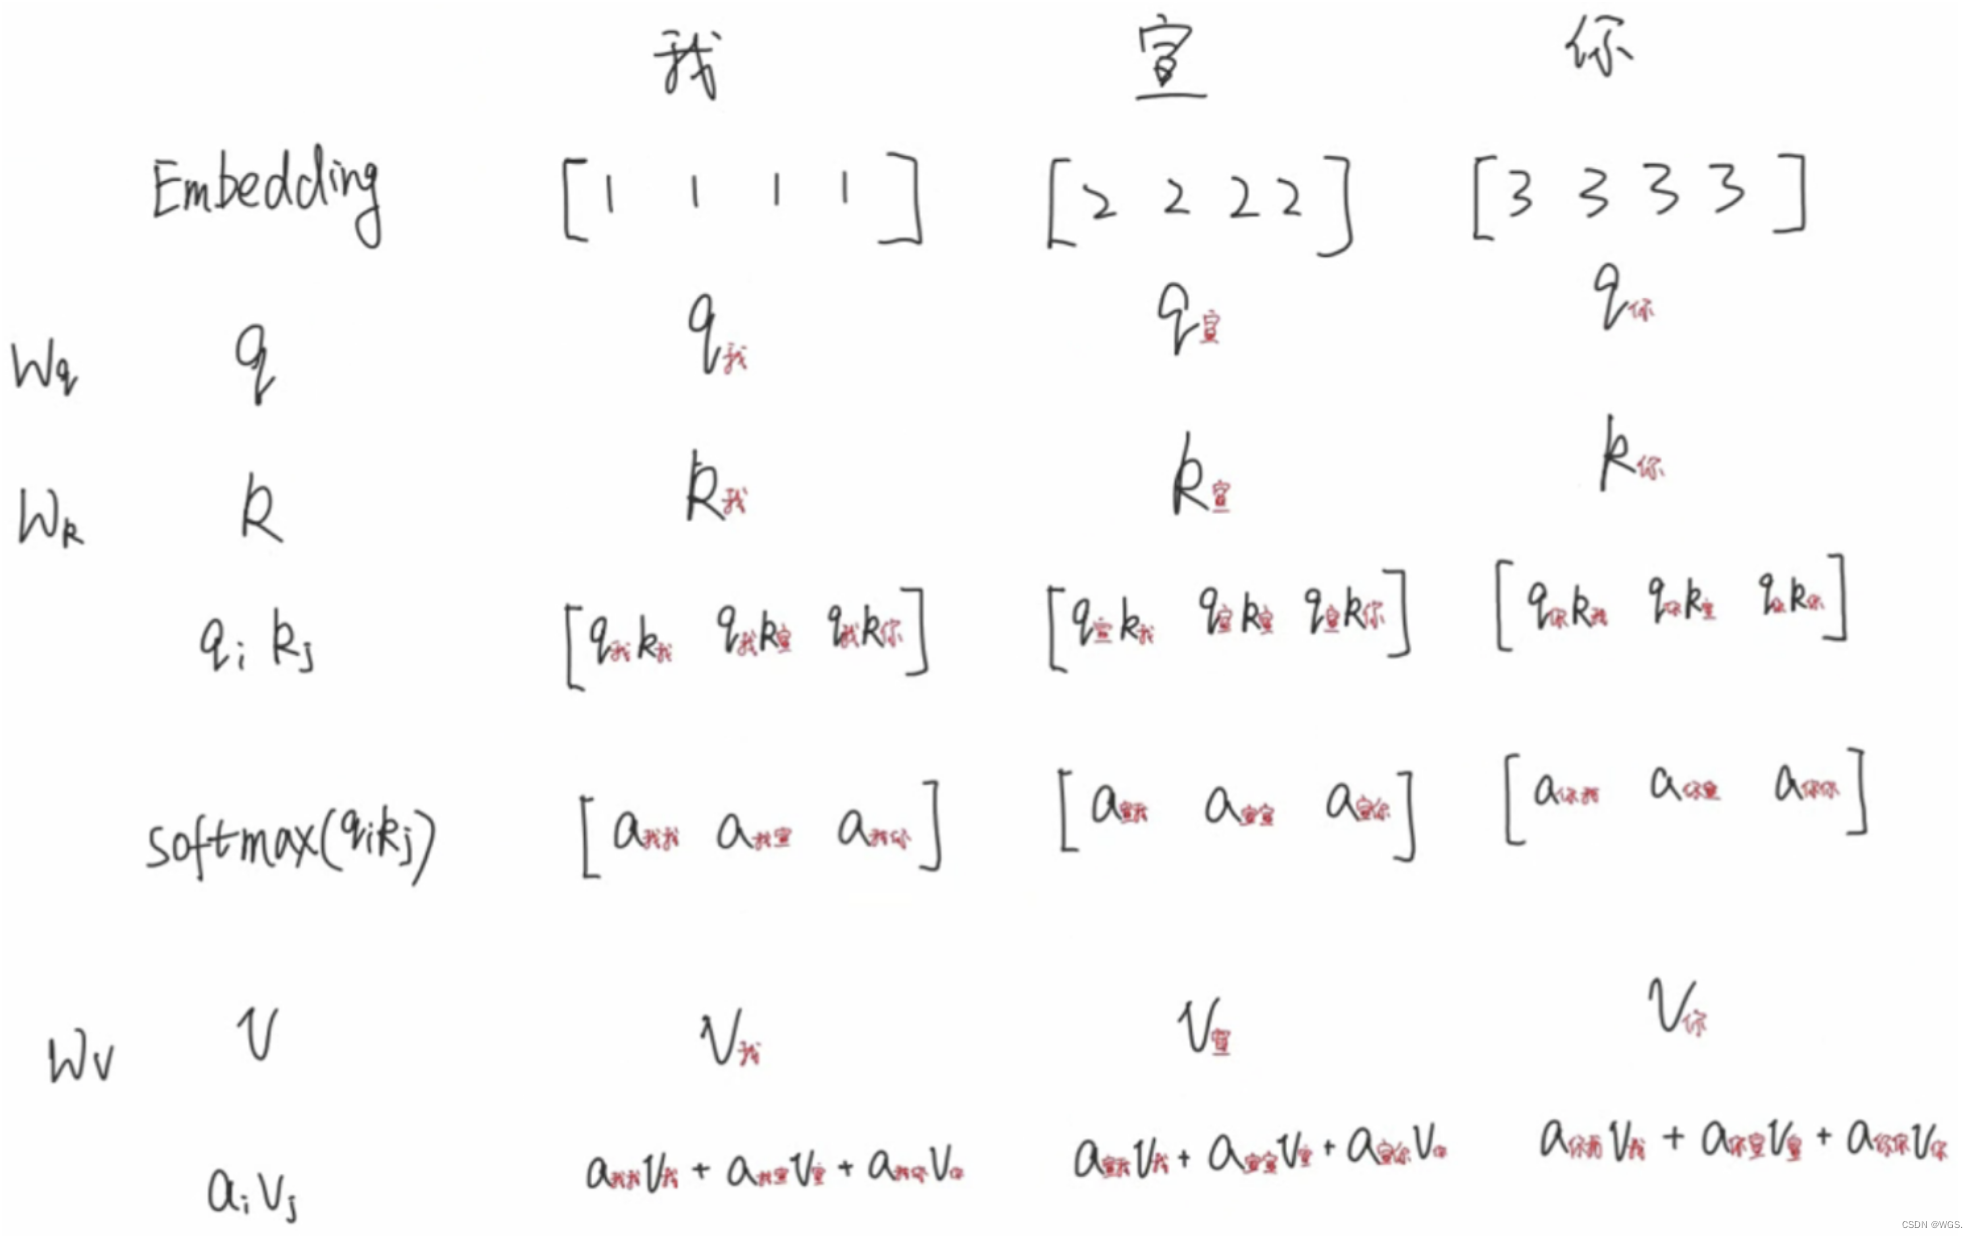 我 宣 你
Embedding [1 1 1 1] [2 2 2 2] [3 3 3 3]
Wq q q我 q宣 q你
Wk k k我 k宣 k你
qi kj [q我k我 q我k宣 q我k你] [q宣k我 q宣k宣 q宣k你] [q你k我 q你k宣 q你k你]
softmax(qikj) [a我我 a我宣 a我你] [a宣我 a宣宣 a宣你] [a你我 a你宣 a你你]
Wv v v我 v宣 v你
aivj a我我v我 + a我宣v宣 + a我你v你 a宣我v我 + a宣宣v宣 + a宣你v你 a你我v我 + a你宣v宣 + a你你v你
CSDN @WGS.